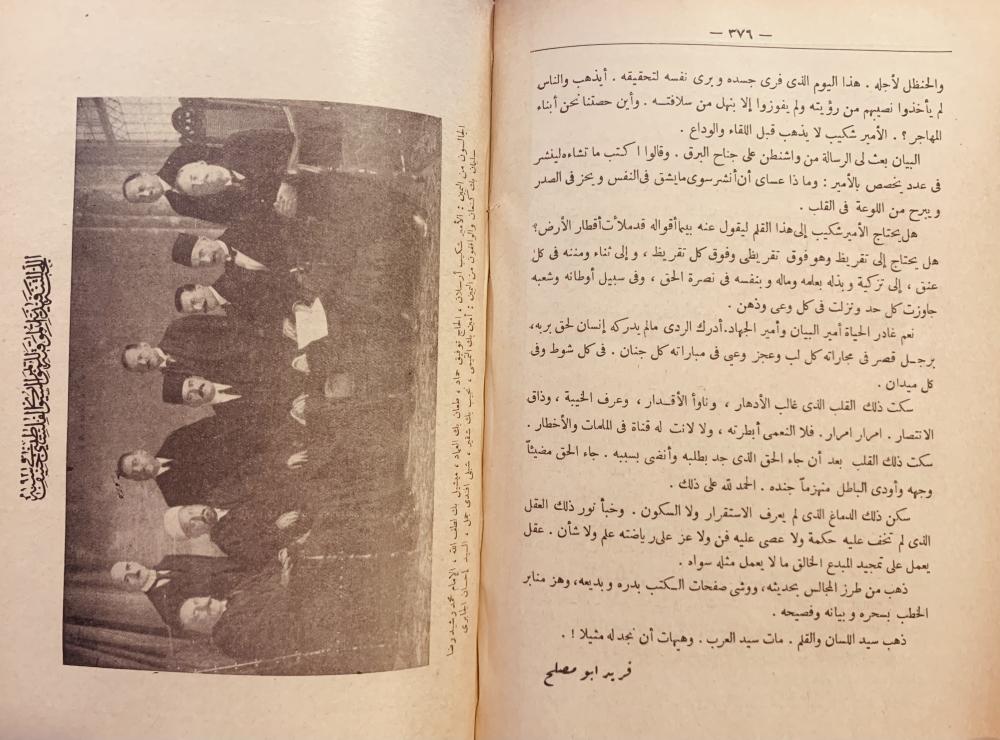 — ٣٧٦ —
والحنظل لأجله . هذا اليوم الذى فرى جسده وبرى نفسه لتحقيقه . أيذهب والناس
لم يأخذوا نصيبهم من رؤيته ولم يفوزوا إلا بنهل من سلافتـه . وأين حصتنا نحن أبناء
المهاجر ؟ . الأمير شكيب لا يذهب قبل اللقاء والوداع .
البيان بعث لى الرسالة من واشنطن على جناح البرق . وقالوا اكتب ما تشاءه لينشر
فى عدد يخصص بالأمير : وما ذا عساى أن أنشر سوى ما يشق فى النفس ويحز فى الصدر
ويبرح من اللوعة فى القلب .
هل يحتاج الأمير شكيب إلى هذا القلم ليقول عنه بينما أقواله قد ملأت أقطار الأرض ؟
هل يحتاج إلى تقريظ وهو فوق تقريظى وفوق كل تقريظ ، و إلى ثناء ومننه فى كل
عنق ، إلى تزكية و بذله بعلمه وماله و بنفسه فى نصرة الحق ، وفى سبيل أوطانه وشعبه
جاوزت كل حد ونزلت فى كل وعى وذهن .
نعم غادر الحياة أمير البيان وأمير الجهاد . أدرك الردى مالم يدركه إنسان لحق بربه ،
برجـل قصر فى مجاراته كل لب وعجز وعى فى مباراته كل جنان . فى كل شوط وفى
كل ميدان .
سكت ذلك القلب الذى غالب الأدهار ، وناوأ الأقـدار ، وعرف الخيبة ، وذاق
الانتصار . امرار امرار . فلا النعمى أبطرته ، ولا لانت له قناة فى الملمات والأخطار .
سكت ذلك القلب بعد أن جاء الحق الذى جد بطلبه وأنضى بسببه . جاء الحق مضيئاً
وجهه وأودى الباطل منهزماً جنده . الحمد لله على ذلك .
سكن ذلك الدماغ الذى لم يعرف الاستقرار ولا السكون . وخبأ نور ذلك العقل
الذى لم تخف عليه حكمة ولا عصى عليه فن ولا عز على رياضته علم ولا شأن . عقل
يعمل على تمجيد المبدع الخالق ما لا يعمل مثله سواه .
ذهب من طرز المجالس بحديثه ، ووشى صفحات الكتب بدره و بديعه ، وهز منابر
الخطب بسحره و بيانه وفصيحه .
ذهب سيد اللسان والقلم . مات سيد العرب . وهيهات أن نجد له مثيلا ! .
فريد ابو مصلح
الجالسون من اليمين : الأمير شكيب أرسلان ، الحاج توفيق حماد ، طعان بك العماد ، ميشيل بك لطف الله ، الامام محمد رشيد رضا
سليمان بك كنعان والواقفون من اليمين : أمين بك التميمى ، نجيب بك شقير ، شبلى افندى جمل ، السيد إحسان الجابرى